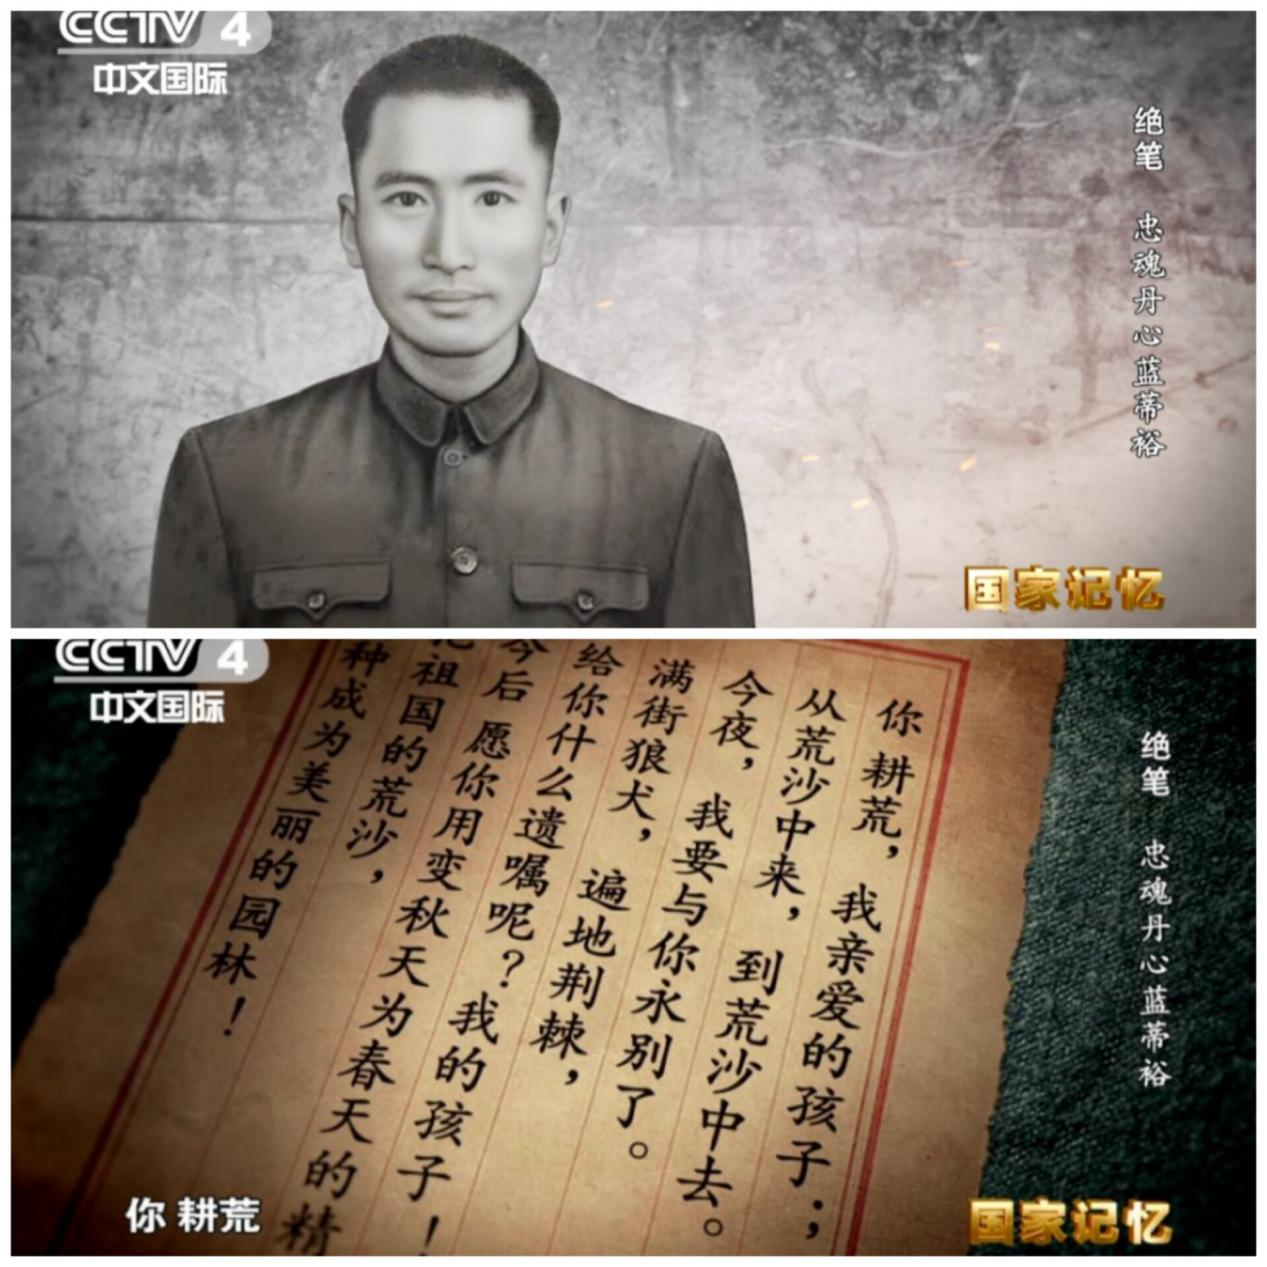 CCTV 4
中文国际
绝笔 忠魂丹心蓝蒂裕
国家记忆
CCTV 4
中文国际
你 耕荒， 我亲爱的孩子；
从荒沙中来， 到荒沙中去。
今夜， 我要与你永别了。
满街狼犬， 遍地荆棘，
给你什么遗嘱呢？ 我的孩子！
今后 愿你用变秋天为春天的精
祖国的荒沙，
种成为美丽的园林！
绝笔 忠魂丹心蓝蒂裕
你 耕荒
国家记忆